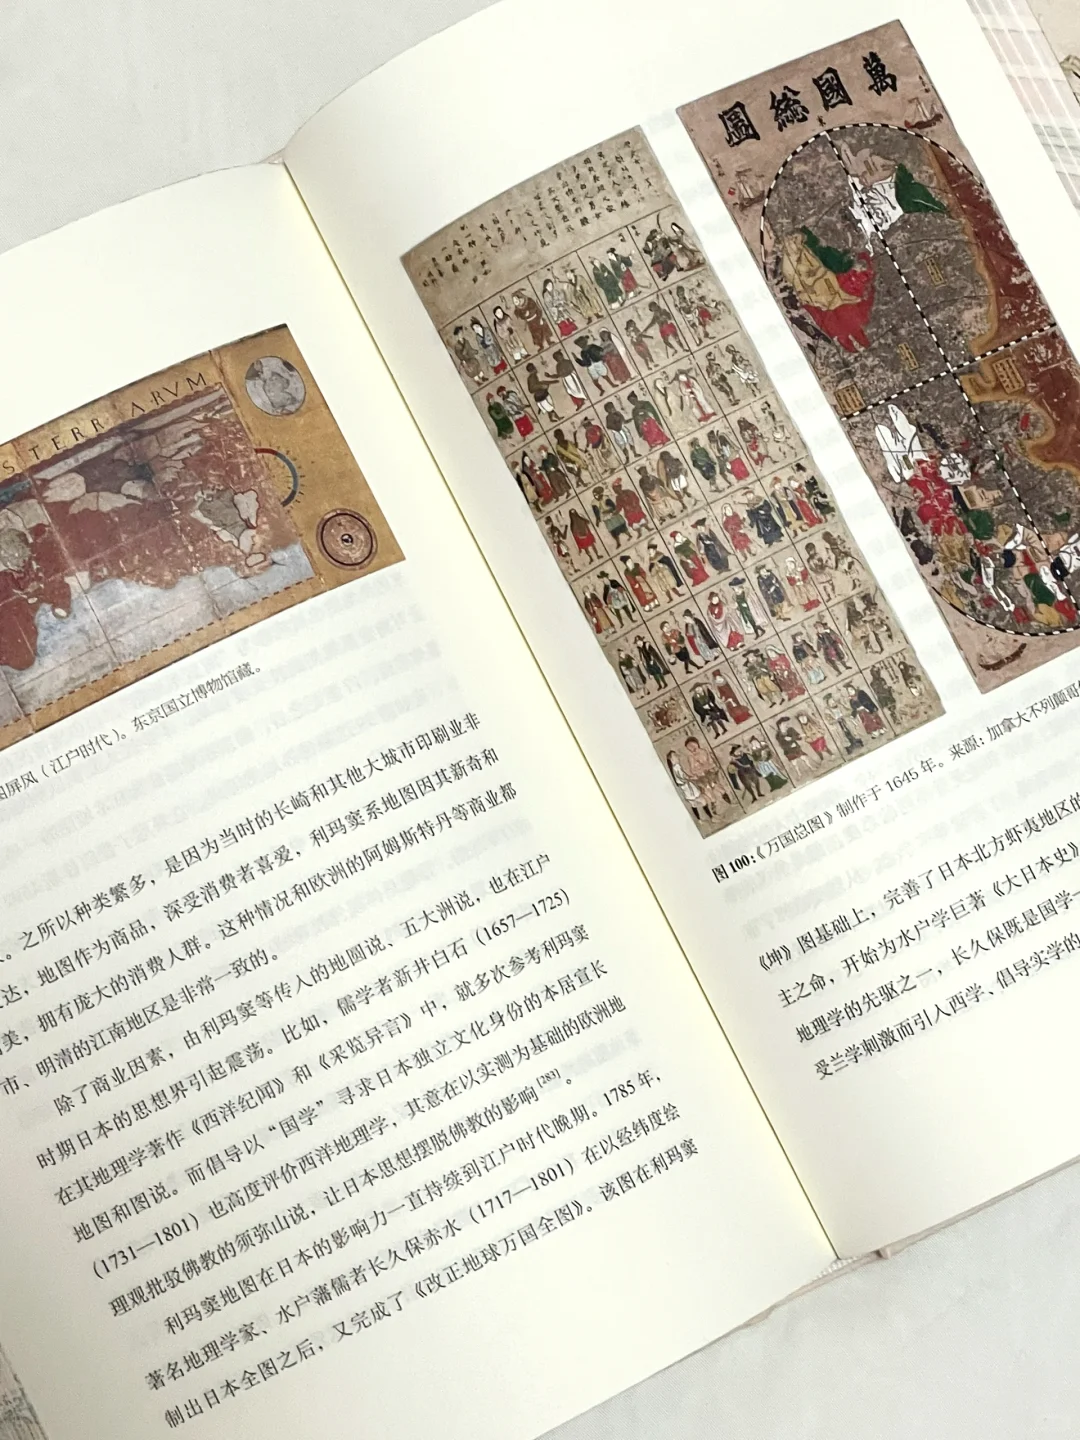 S TERR ARVM
图屏风（江户时代）。东京国立博物馆藏。
。之所以种类繁多，是因为当时的长崎和其他大城市印刷业非
达，地图作为商品，深受消费者喜爱，利玛窦系地图因其新奇和
美，拥有庞大的消费人群。这种情况和欧洲的阿姆斯特丹等商业都
市、明清的江南地区是非常一致的。
除了商业因素，由利玛窦等传入的地圆说、五大洲说，也在江户
时期日本的思想界引起震荡。比如，儒学者新井白石（1657—1725）
在其地理学著作《西洋纪闻》和《采览异言》中，就多次参考利玛窦
地图和图说。而倡导以“国学”寻求日本独立文化身份的本居宣长
（1731—1801）也高度评价西洋地理学，其意在以实测为基础的欧洲地
理观批驳佛教的须弥山说，让日本思想摆脱佛教的影响[283]。
利玛窦地图在日本的影响力一直持续到江户时代晚期。1785年，
著名地理学家、水户藩儒者长久保赤水（1717—1801）在以经纬度绘
制出日本全图之后，又完成了《改正地球万国全图》。该图在利玛窦
萬國総圖
图100:《万国总图》制作于1645年。来源：加拿大不列颠哥
《坤》图基础上，完善了日本北方虾夷地区的
主之命，开始为水户学巨著《大日本史》
地理学的先驱之一，长久保既是国学
受兰学刺激而引入西学、倡导实学的